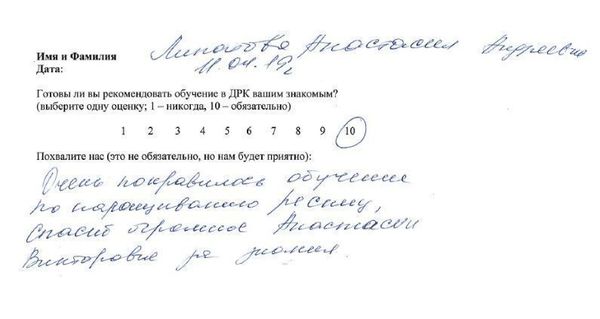 Имя и Фамилия Липатова Анастасия Андреевна
Дата: 11.04.19г
Готовы ли вы рекомендовать обучение в ДРК вашим знакомым?
(выберите одну оценку; 1 – никогда, 10 – обязательно)
1 2 3 4 5 6 7 8 9 10
Похвалите нас (это не обязательно, но нам будет приятно):
Очень понравилось обучение
по наращиванию ресниц,
Спасиб огромное Анастасии
Викторовне за знания.